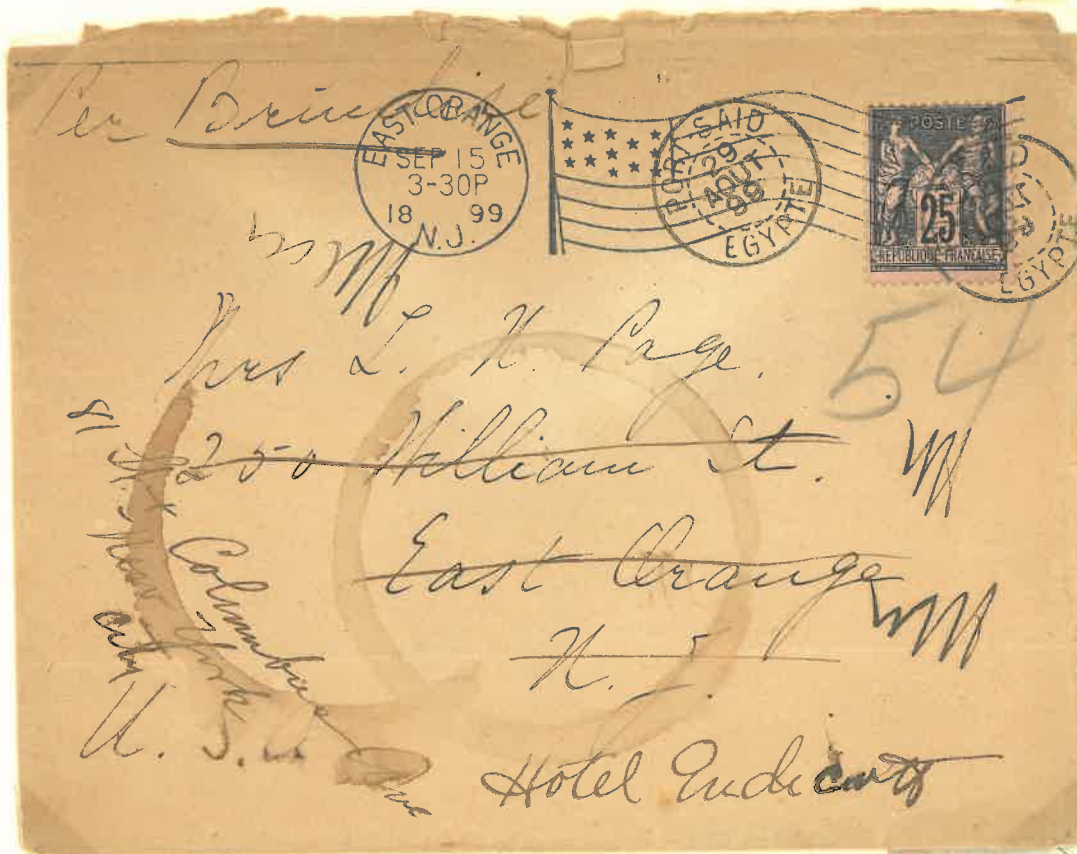 Per Brindisi
EAST ORANGE
SEP 15
3-30P
18 99
N.J.
PORT SAID
29
AOUT
99
EGYPTE
POSTE
25
REPUBLIQUE FRANÇAISE
EGYPTE
54
Mrs L. H. Page.
250 William St.
East Orange
N. J.
U. S.
Hotel Endicott
81 St & Columbus Ave
New York
City